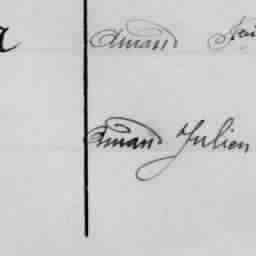 Amand
Amand Julien